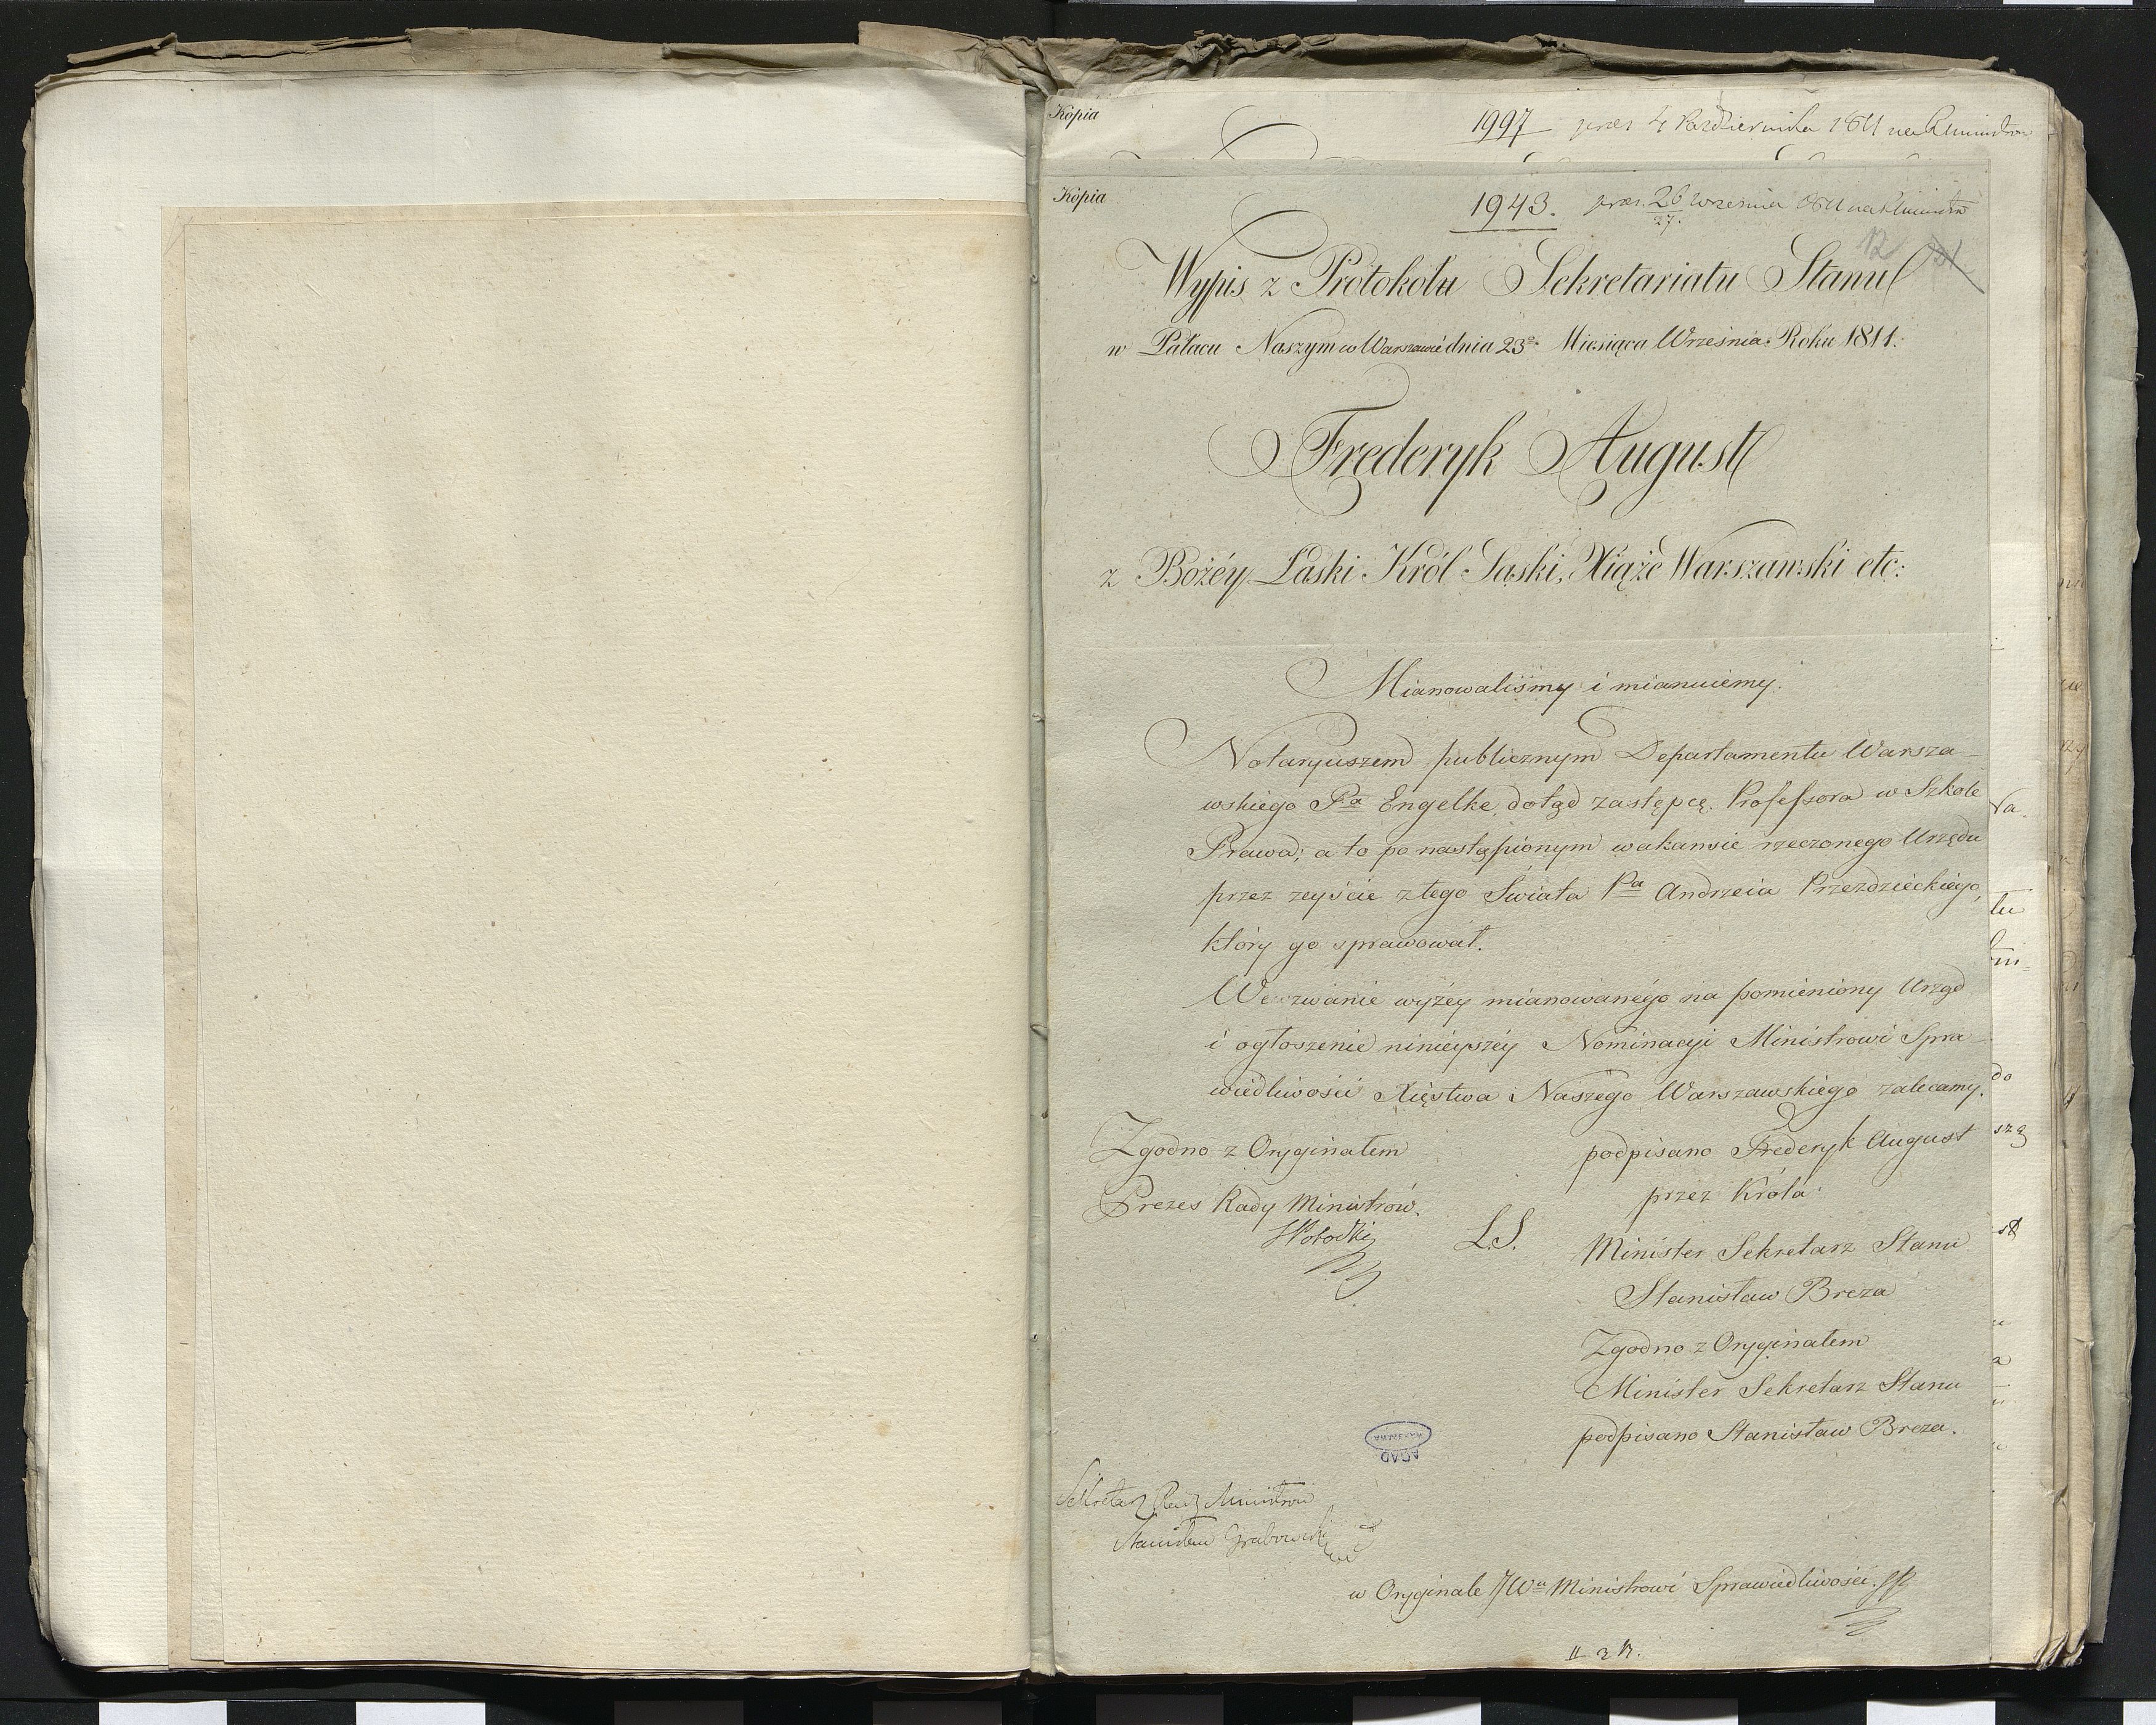 Kopia
1997 prez 4 Października 1811 na R Ministrów
Kopia
1943. prez. 26 września 1811 na R Ministrów
27.
12 31
Wypis z Protokołu Sekretariatu Stanu
w Pałacu Naszym w Warszawie dnia 23º Miesiąca Września Roku 1811.
Frederyk August
z Bożéy Łaski Król Saski, Xiąże Warszawski etc:
Mianowaliśmy i mianuiemy.
Notaryuszem publicznym Departamentu Warsza-
wskiego Pa Engelke, dotąd zastępcę Professora w Szkole
Prawa; a to po nastąpionym wakansie rzeczonego Urzędu
przez zeyście z tego Świata Pa Andrzeia Przezdzieckiego,
który go sprawował.
Wezwanie wyżey mianowanégo na pomieniony Urząd
i ogłoszenie ninieyszéy Nominacyi Ministrowi Spra-
wiedliwości Xięstwa Naszego Warszawskiego zalecamy.
Zgodno z Oryginałem
Prezes Rady Ministrów.
SPotocki
L.S.
podpisano Frederyk August
przez Króla
Minister Sekretarz Stanu
Stanisław Breza
Zgodno z Oryginałem
Minister Sekretarz Stanu
podpisano Stanisław Breza.
AGAD
WARSZAWA
Sekretarz Rady Ministrów
Stanisław Grabowski
w Oryginale JWu Ministrowi Sprawiedliwości.